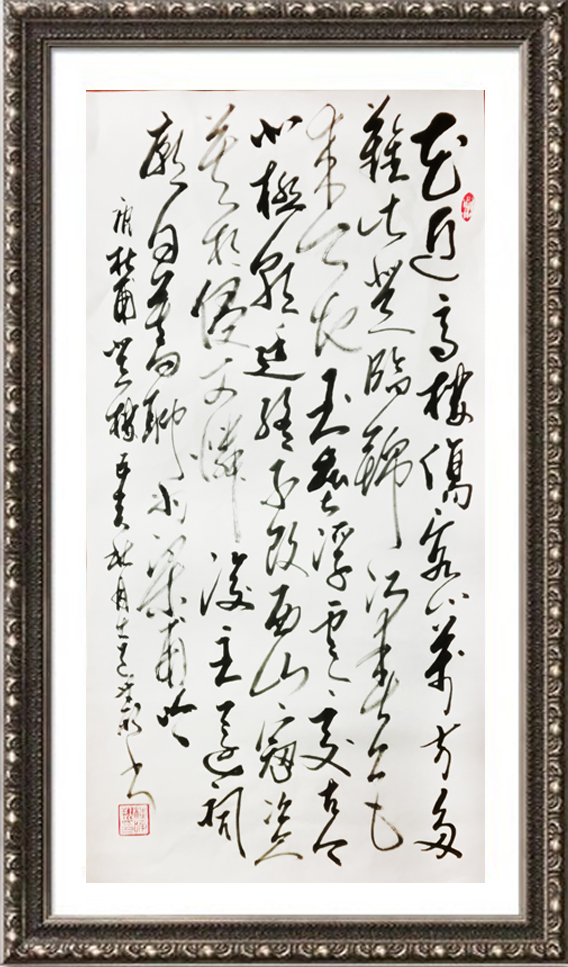 花近高樓傷客心萬方多
難此登臨錦江春色
來天地玉壘浮雲變古今
北極朝廷終不改西山寇盜
莫相侵可憐後主還祠
廟日暮聊為梁甫吟
杜甫登樓己亥秋月書